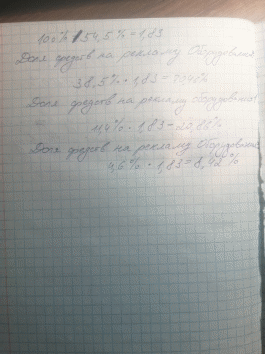 100% / 54,5% = 1,83
Доля средств на рекламу Оборудования
38,5% · 1,83 = 70,45%
Доля средств на рекламу Оборудования
=
11,4% · 1,83 = 20,86%
Доля средств на рекламу Оборудования
4,6% · 1,83 = 8,42%